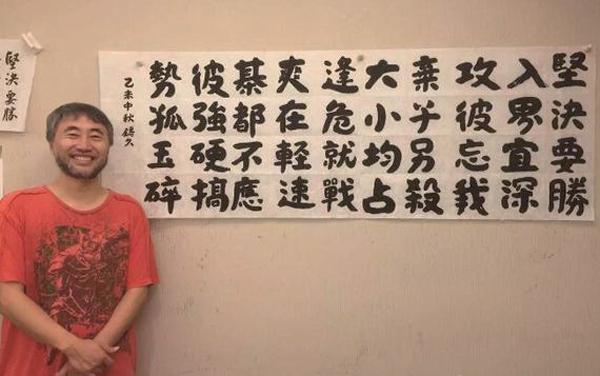 堅決要勝
入界宜深
攻彼忘我
棄子另殺
大小均占
逢危就戰
爽在輕速
棊都不應
彼強硬搞
勢孤玉碎
乙未中秋 鑄久
堅決要勝